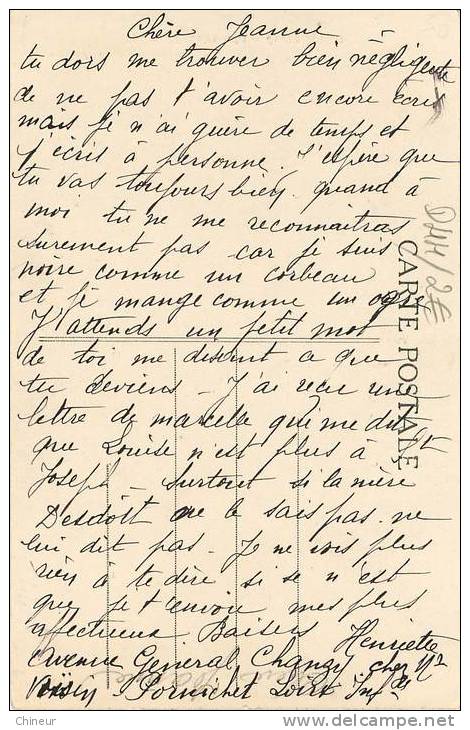 Chère Jeanne
tu dors me trouver bien négligente
de ne pas t'avoir encore écris
mais je n'ai guère de temps et
j'écris à personne. J'espère que
tu vas toujours bien quand à
moi tu ne me reconnaitras
surement pas car je suis
noire comme un corbeau
et je mange comme un ogre
J'attends un petit mot
de toi me disent ce que
tu deviens – J'ai recu un
lettre de marcelle qui me dit
que Louise n'est plus à
Joseph – surtout si la mère
ne le sais pas ne
lui dit pas – Je ne vois plus
rien à te dire si se n'est
que je t'envoie mes plus
affectueux Baisers Henriette
avenue General Chanzy chez Mr
Pornichet Loire Inf
CARTE POSTALE
2€
Chineur
www.delcampe.net